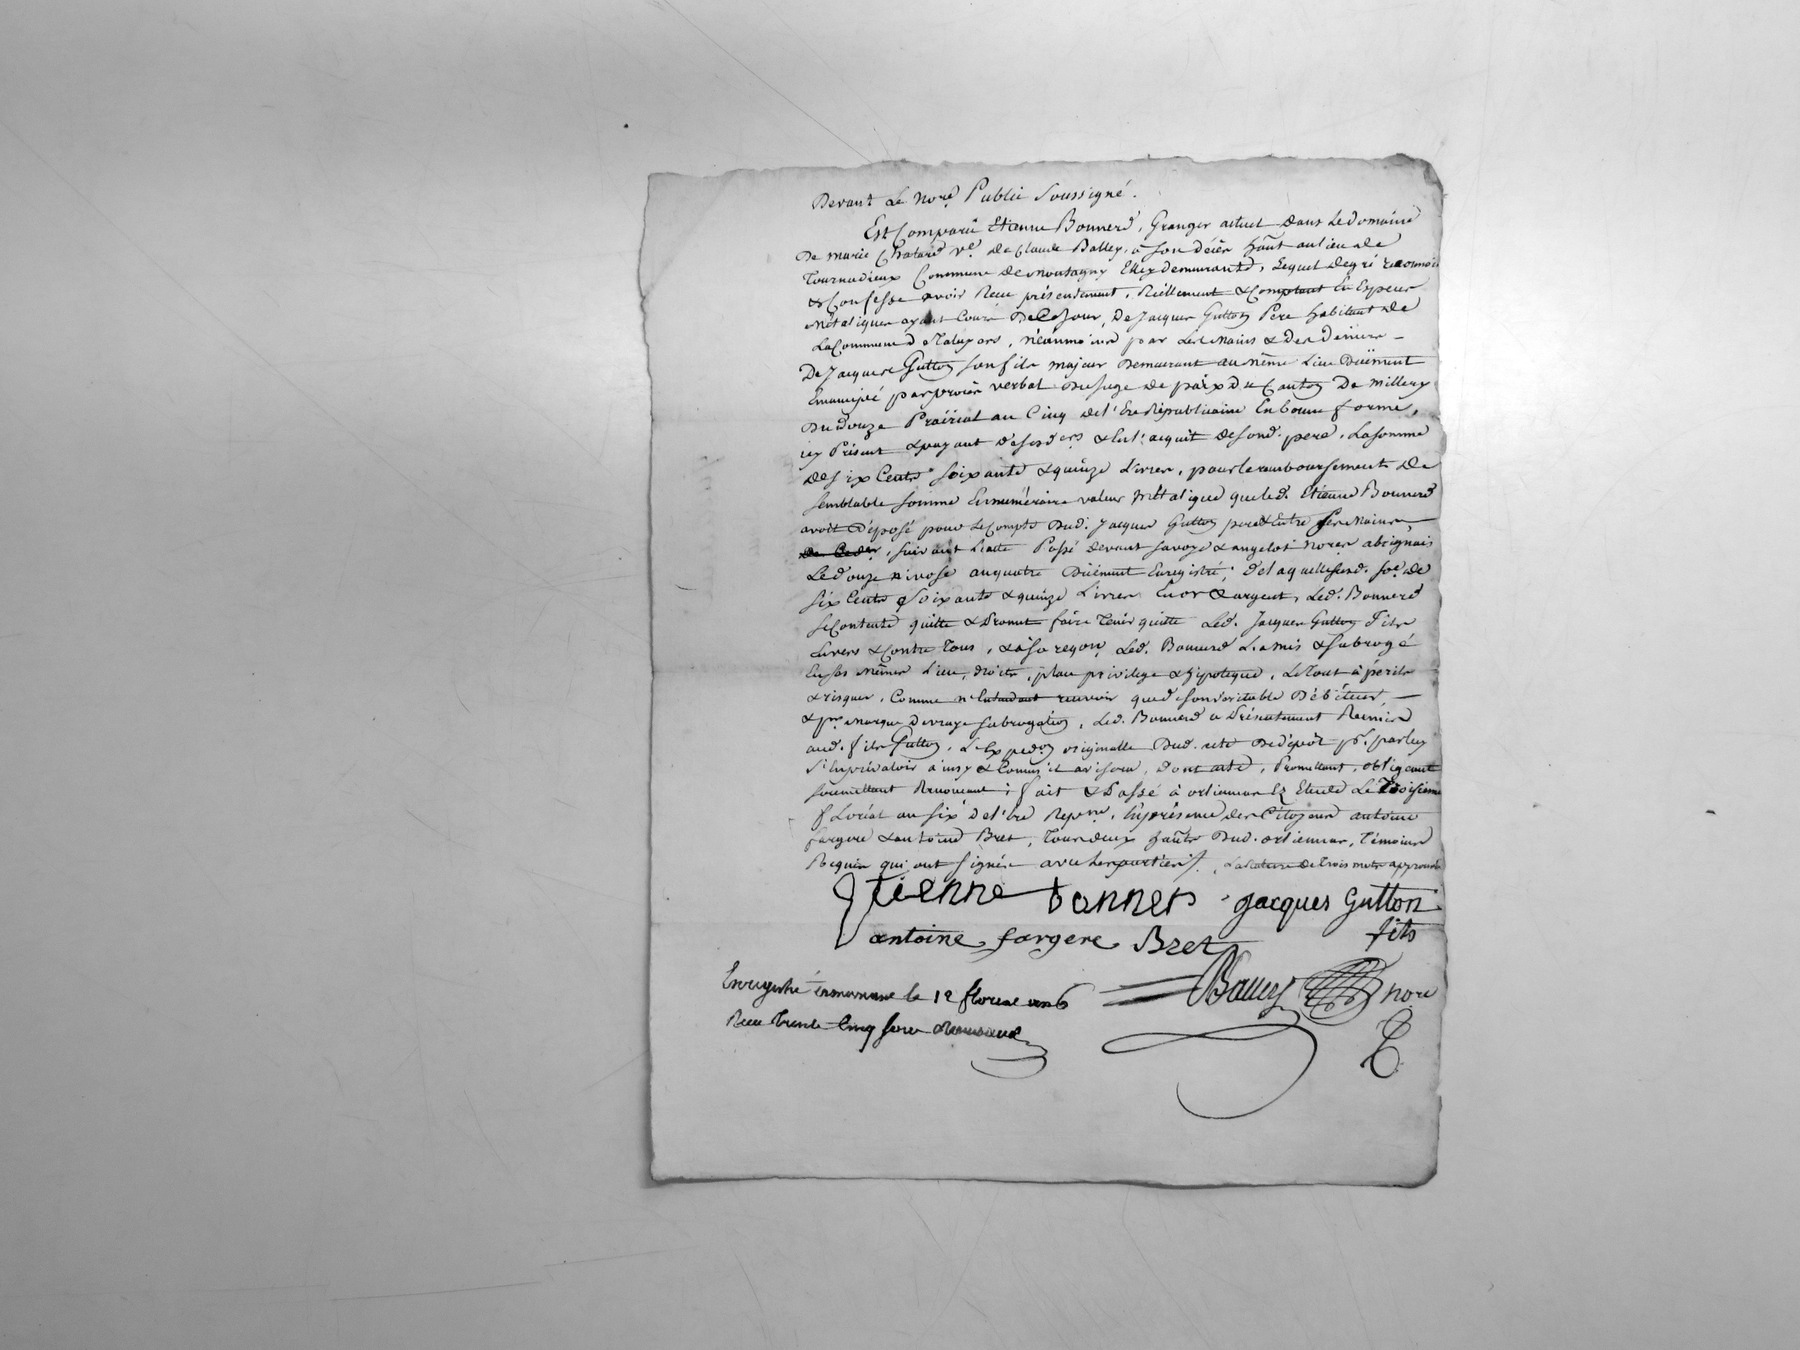 Devant Le nore. Public Soussigné.
Est Comparû Etienne Bonnerd, Granger actuel dans le domaine
De marie Chatard ve. De Claude Balley, à son décès hânt au lieu de
Tournadieux Commune de Montagny Et y demeurante, Lequel de gré reconnoit
& Confesse avoir Receu présentement, Réellement & Comptant En Especes
Métaliques ayant Cours De Ce Jour, De Jacques Gutton Pere habitant de
La Commune d néanmoins par Les Mains & Des Deniers
De Jacques Gutton son fils majeur Demeurant au même Lieu Duëment
Emancipé par procès verbal Du Juge De paix Du Canton De Millery
Du douze Prairial an Cinq de l'Ere Républicaine En bonne forme,
icy Présent & payant De ses d ers & En l'acquit de son d. pere, La somme
De six Cents soixante & quinze Livres, pour le remboursement De
semblable somme En numéraire valeur Métalique que led. Etienne Bonnerd
avoit Déposé pour Le Compte Dud. Jacques Gutton pere Entre les Mains
suivant L'acte Passé devant Savoye & angelot nores a brignais
Le douze nivose an quatre Duëment Enregistré; de laquelle sud. soe. de
six Cents soixante & quinze Livres En or & argent, Led. Bonnerd
se Contente quitte & Promet faire Tenir quitte Led. Jacques Gutton Fils
Envers & Contre Tous, & à sa reqon. Led. Bonnerd L'a mis & subrogé
En ses Mêmes Lieu, droits, place privilege & hypoteque, Le Tout à périls
& risques, Comme n'Entendant recevoir que de son véritable Débiteur,
& pr. Marque De vraye subrogation, Led. Bonnerd a Présentement Remis
aud. fils Gutton, L'Expedon. originalle Dud. acte De dépôt pr. par luy
s'En prévaloir ainsy & Comme il avisera, Dont acte, Promettant, obligeant
soumettant Renonçant; fait & Passé à orlienas Ez Etude Le Troisieme
floréal an six de l'Ere Repne. En présence des Citoyens antoine
fargere & antoine Bret, Tous deux hants Dud. orlienas, Témoins
Requis qui ont signés avec les parties. La rature de Trois mots approuvée
Etienne bonner jacques Gutton
fils
antoine fargere Bret
Enregistré le 12 floreal an 6 nore
Receu Trente Cinq sous